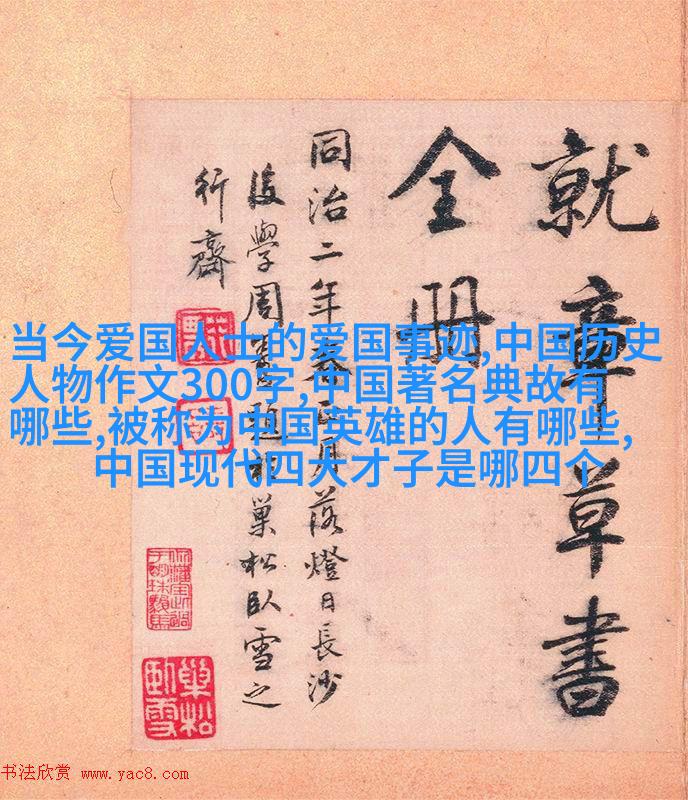 就章草書
全册
同治二年春正月落燈日長沙
後學周壽昌題於巢松臥雪之
行齋
当今爱国人士的爱国事迹,中国历史
人物作文300字,中国著名典故有
哪些,被称为中国英雄的人有哪些,
中国现代四大才子是哪四个
巢松
臥雪
书法欣赏 www.yac8.com